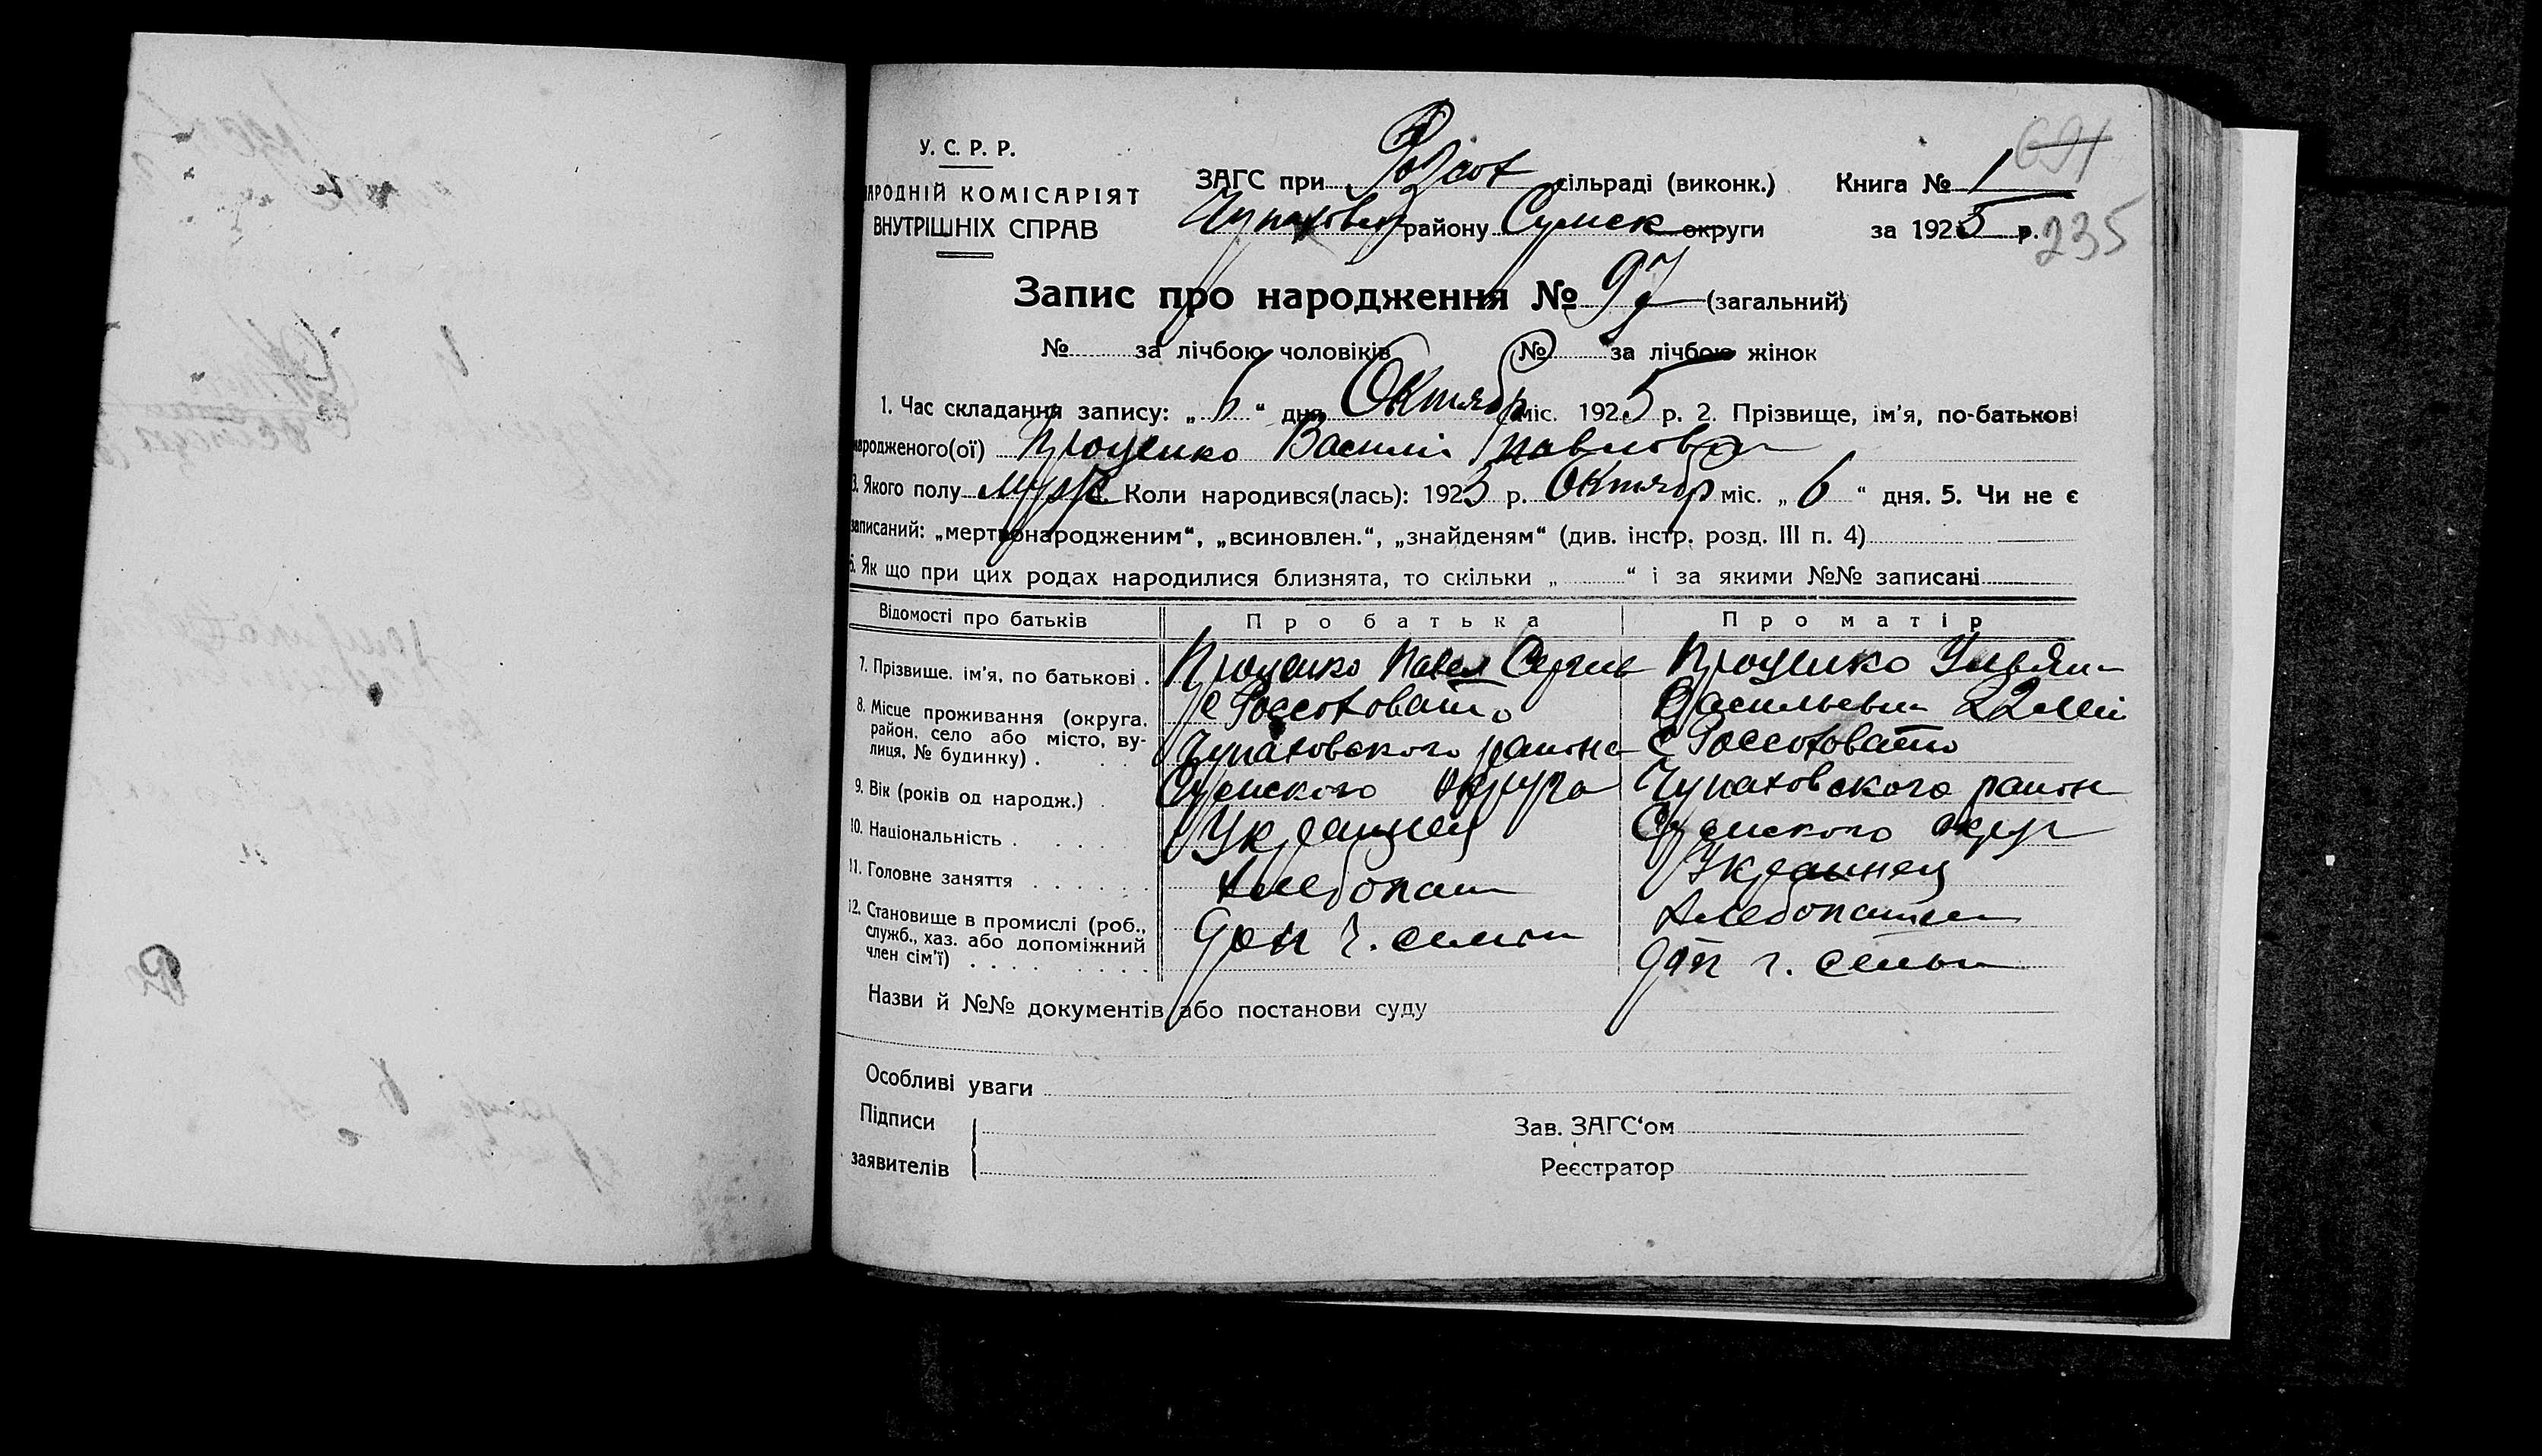 У. С. Р. Р.
АРОДНІЙ КОМІСАРІЯТ
ВНУТРІШНІХ СПРАВ
ЗАГС при сільраді (виконк.) Книга № 1
691
району Сумск округи за 1925 р.
235
Запис про народження № 97 (загальний)
№ за лічбою чоловіків № за лічбою жінок
1. Час складання запису: „ 6 “ дня Октябр міс. 1925 р. 2. Прізвище, ім'я, по-батькові
народженого(ої) Проценко Василий Павлов
3. Якого полу муж Коли народився(лась): 1925 р. Октябр міс. „ 6 “ дня. 5. Чи не є
записаний: „мертвонародженим“, „всиновлен.“, „знайденям“ (див. інстр. розд. III п. 4)
6. Як що при цих родах народилися близнята, то скільки „ “ і за якими №№ записані
Відомості про батьків Про батька Про матір
7. Прізвище, ім'я, по батькові . Проценко Павел Проценко Ульян
8. Місце проживання (округа, район, село або місто, вулиця, № будинку) . с Россоховато Васильевн 22 лет
Чупаховского района с Россоховато
9. Вік (років од народж.) . Сумского округа Чупаховского район
10. Національність . Украинец Сумского округ
Украинец
11. Головне заняття . Хлебопаш Хлебопаш
12. Становище в промислі (роб., служб., хаз. або допоміжний член сім'ї) . доп ч. семьи доп ч. семьи
Назви й №№ документів або постанови суду
Особливі уваги
Підписи Зав. ЗАГС‘ом
заявителів Реєстратор